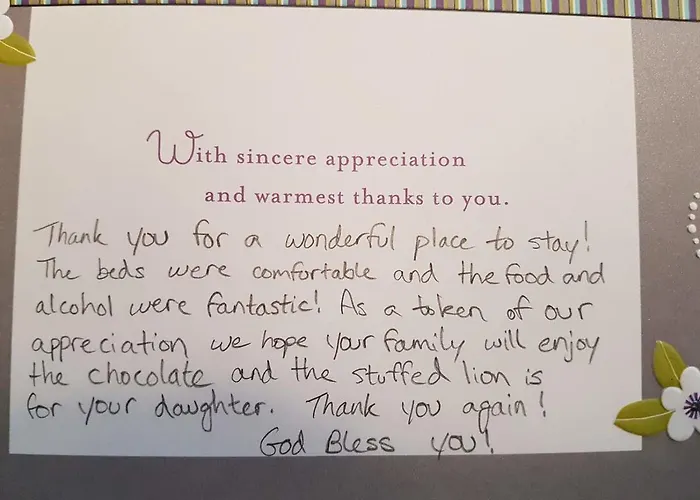 With sincere appreciation
and warmest thanks to you.
Thank you for a wonderful place to stay!
The beds were comfortable and the food and
alcohol were fantastic! As a token of our
appreciation we hope your family will enjoy
the chocolate and the stuffed lion is
for your daughter. Thank you again!
God Bless you!